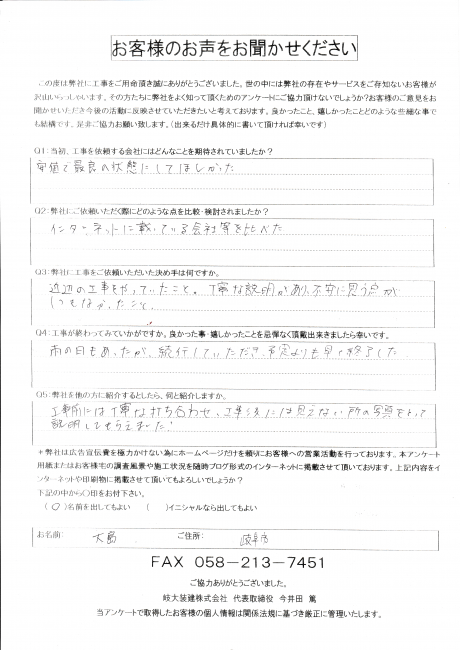 お客様のお声をお聞かせください
この度は弊社に工事をご用命頂き誠にありがとうございました。世の中には弊社の存在やサービスをご存知ないお客様が
沢山いらっしゃいます。その方たちに弊社をよく知って頂くためのアンケートにご協力頂けないでしょうか?お客様のご意見をお
聞かせいただき今後の活動に反映させていただきたいと考えております。良かったこと、嬉しかったことどのような些細な事で
も結構です。是非ご協力お願い致します。(出来るだけ具体的に書いて頂ければ幸いです)
Q1:当初、工事を依頼する会社にはどんなことを期待されていましたか?
安価で最良の状態にしてほしかった
Q2:弊社にご依頼いただく際にどのような点を比較・検討されましたか?
インターネットに載っている会社等を比べた
Q3:弊社に工事をご依頼いただいた決め手は何ですか。
近辺の工事をやっていたこと。丁寧な説明があり、不安に思う点が
いつもなかったこと、
Q4:工事が終わってみていかがですか。良かった事・嬉しかったことを忌憚なく頂戴出来きましたら幸いです。
雨の日もあったが、続行していただき、予定よりも早く終了した
Q5:弊社を他の方に紹介するとしたら、何と紹介しますか。
工事前には丁寧な打ち合わせ、工事後には見えない所の写真をとって
説明してもらえました!
+弊社は広告宣伝費を極力かけない為にホームページだけを頼りにお客様への営業活動を行っております。本アンケート
用紙またはお客様宅の調査風景や施工状況を随時ブログ形式のインターネットに掲載させて頂いております。上記内容をイ
ンターネットや印刷物に掲載させて頂いてもよろしいでしょうか?
下記の中から○印をお付下さい。
(○)名前を出してもよい ( )イニシャルなら出してもよい
お名前: 大島 ご住所: 岐阜市
FAX 058-213-7451
ご協力ありがとうございました。
岐太装建株式会社 代表取締役 今井田 篤
当アンケートで取得したお客様の個人情報は関係法規に基づき厳正に管理いたします。